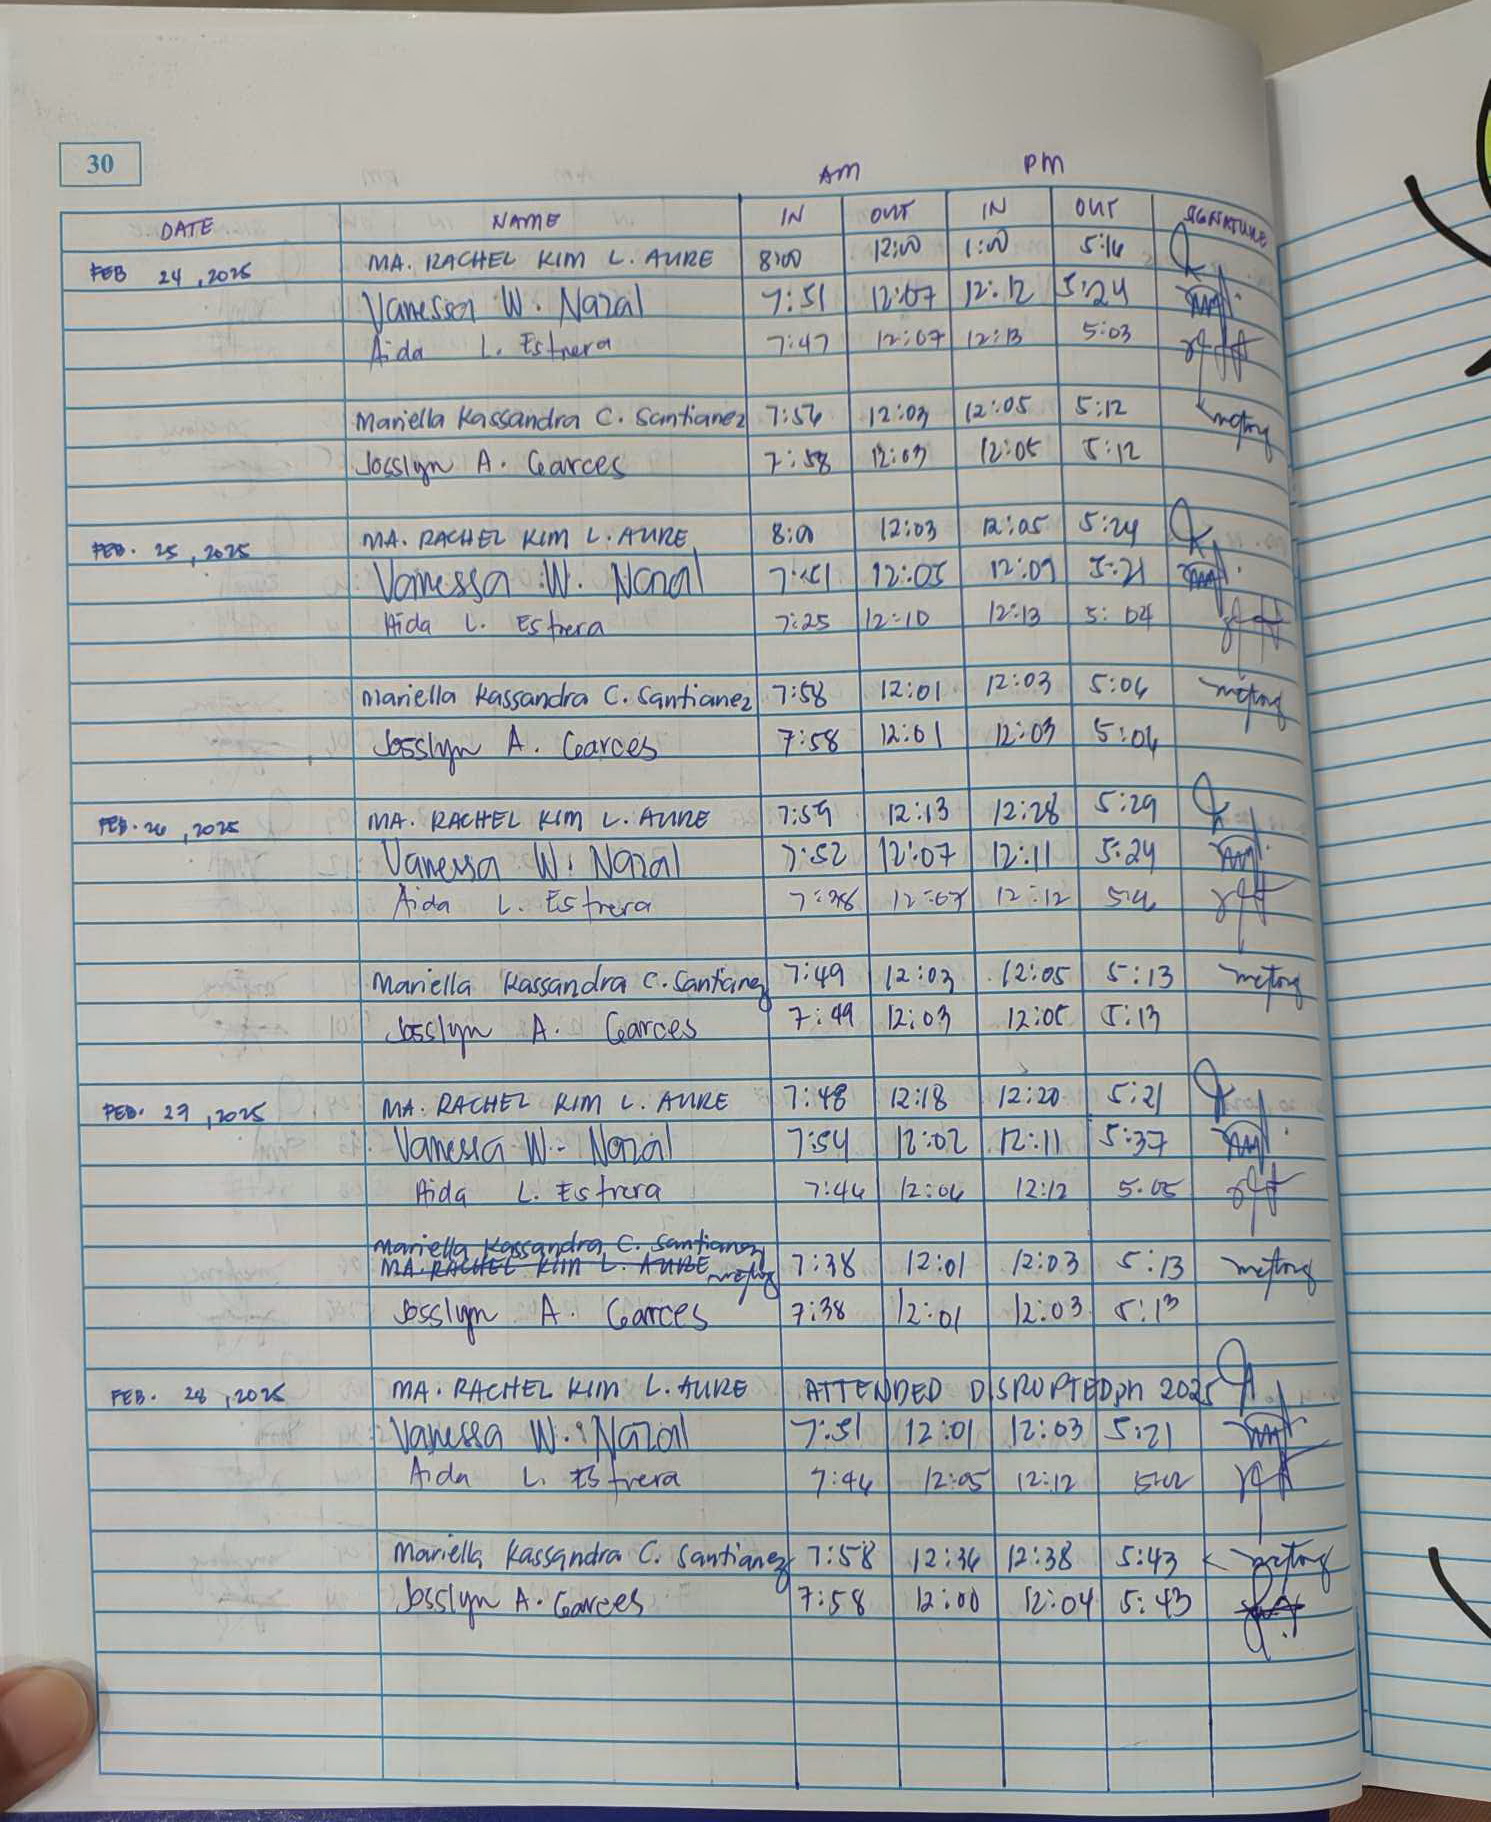 30
AM PM
DATE NAME IN OUT IN OUT SIGNATURE
FEB 24, 2025 MA. RACHEL KIM L. AURE 8:00 12:00 1:00 5:16
Vanessa W. Nazal 7:51 12:07 12:12 5:24
Aida L. Estrera 7:47 12:07 12:13 5:03
Mariella Kassandra C. Santianez 7:56 12:03 12:05 5:12
Josslyn A. Garces 7:58 12:03 12:05 5:12
FEB. 25, 2025 MA. RACHEL KIM L. AURE 12:03 12:05 5:24
Vanessa W. Nazal 7:51 12:05 12:09 5:21
Aida L. Estrera 7:25 12:10 12:13 5:04
Mariella Kassandra C. Santianez 7:58 12:01 12:03 5:06
Josslyn A. Garces 7:58 12:01 12:03 5:06
FEB. 26, 2025 MA. RACHEL KIM L. AURE 7:59 12:13 12:28 5:29
Vanessa W. Nazal 7:52 12:07 12:11 5:24
Aida L. Estrera 12:12
Mariella Kassandra C. Santianez 7:49 12:03 12:05 5:13
Josslyn A. Garces 7:49 12:03 12:05 5:13
FEB. 27, 2025 MA. RACHEL KIM L. AURE 7:48 12:18 12:20 5:21
Vanessa W. Nazal 7:54 12:02 12:11 5:37
Aida L. Estrera 7:46 12:06 12:12 5:05
Mariella Kassandra C. Santianez
MA. RACHEL KIM L. AURE 7:38 12:01 12:03 5:13
Josslyn A. Garces 7:38 12:01 12:03 5:13
FEB. 28, 2025 MA. RACHEL KIM L. AURE ATTENDED DISRUPTEDPH 2025
Vanessa W. Nazal 7:51 12:01 12:03 5:21
Aida L. Estrera 7:46 12:05 12:12 5:02
Mariella Kassandra C. Santianez 7:58 12:36 12:38 5:43
Josslyn A. Garces 7:58 12:00 12:04 5:43